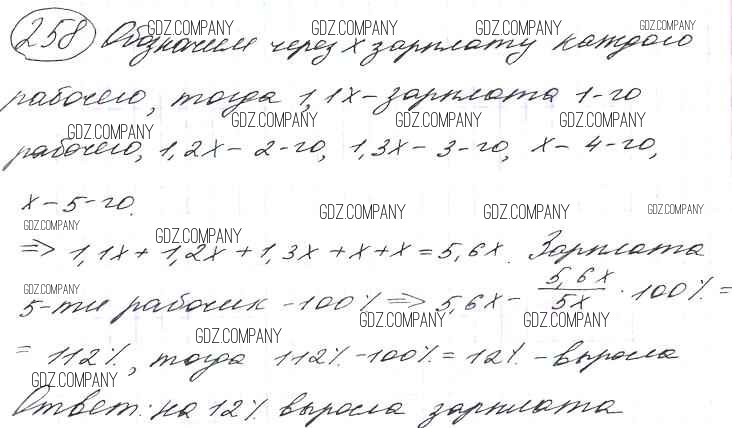 258 Обозначем через x зарплату каждого
рабочего, тогда 1,1x - зарплата 1-го
рабочего, 1,2x - 2-го, 1,3x - 3-го, x - 4-го,
x - 5-го.
=> 1,1x + 1,2x + 1,3x + x + x = 5,6x. Зарплата
5-ти рабочих - 100% => 5,6x - 5,6x/5x · 100% =
= 112%, тогда 112% - 100% = 12% - выросла
Ответ: на 12% выросла зарплата
GDZ.COMPANY GDZ.COMPANY GDZ.COMPANY GDZ.COMPANY
GDZ.COMPANY GDZ.COMPANY GDZ.COMPANY GDZ.COMPANY
GDZ.COMPANY GDZ.COMPANY GDZ.COMPANY GDZ.COMPANY
GDZ.COMPANY
GDZ.COMPANY GDZ.COMPANY GDZ.COMPANY
GDZ.COMPANY
GDZ.COMPANY